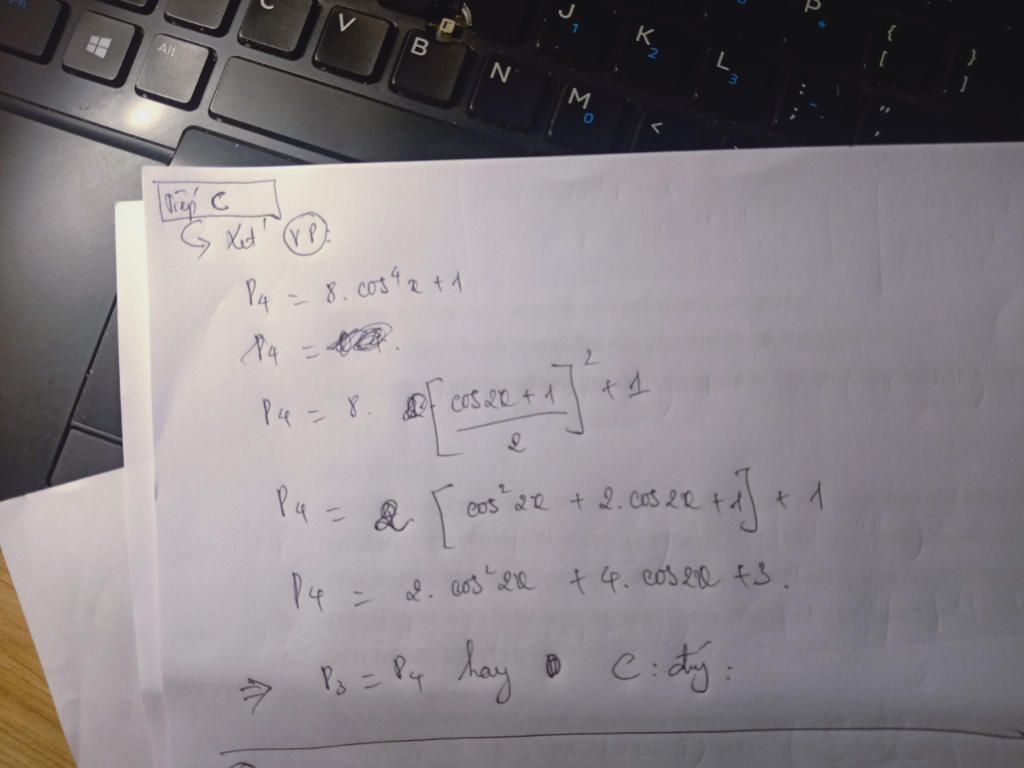 C V B N M 0 < J 1 K 2 L 3 P * { [ } ] : ; "
Alt
Tiếp C
↪ Xét VP:
P₄ = 8. cos⁴x + 1
P₄ =
P₄ = 8. [cos2x + 1 / 2]² + 1
P₄ = 2. [cos²2x + 2. cos2x + 1] + 1
P₄ = 2. cos²2x + 4. cos2x + 3.
⇒ P₃ = P₄ hay C: đúng: